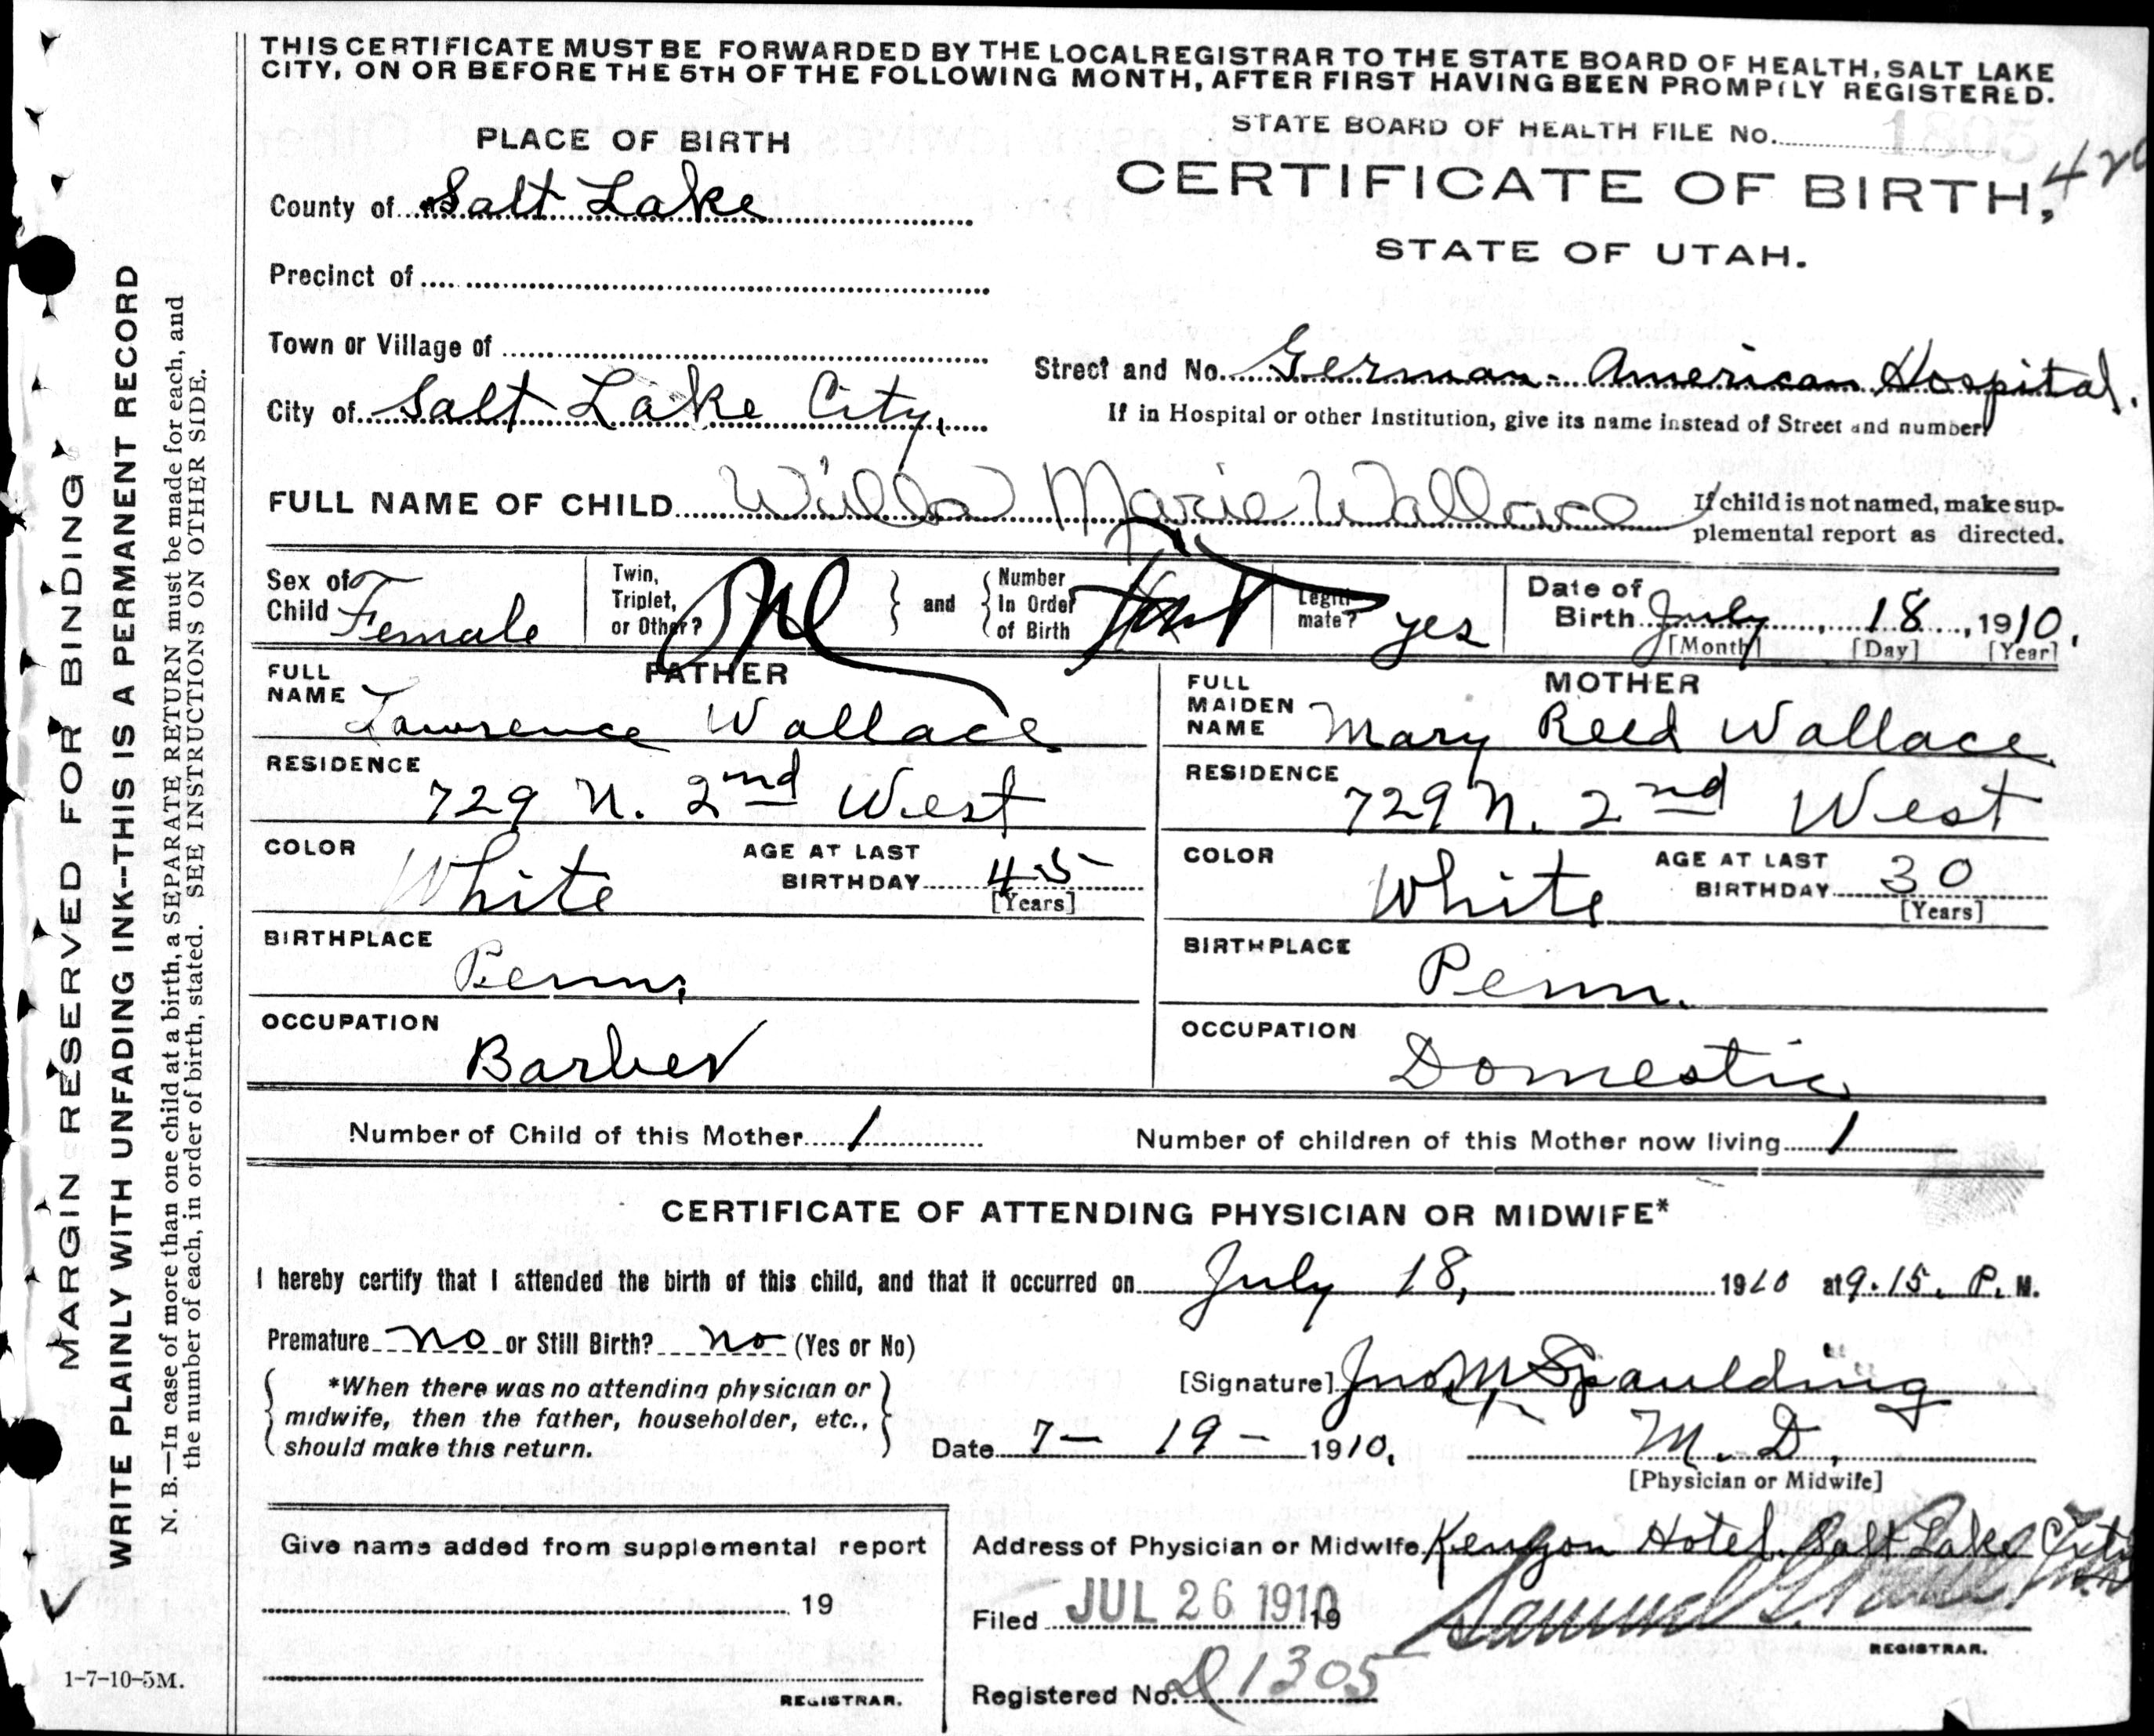 THIS CERTIFICATE MUST BE FORWARDED BY THE LOCAL REGISTRAR TO THE STATE BOARD OF HEALTH, SALT LAKE
CITY, ON OR BEFORE THE 5TH OF THE FOLLOWING MONTH, AFTER FIRST HAVING BEEN PROMPTLY REGISTERED.
STATE BOARD OF HEALTH FILE No.
PLACE OF BIRTH
CERTIFICATE OF BIRTH,
County of Salt Lake
STATE OF UTAH.
Precinct of
Town or Village of
Street and No. German-American Hospital.
City of Salt Lake City,
If in Hospital or other Institution, give its name instead of Street and number
FULL NAME OF CHILD Willa Marie Wallace
If child is not named, make sup-
plemental report as directed.
Sex of Child Female
Twin, Triplet, or Other?
and
Number In Order of Birth
Legiti-mate? yes
Date of Birth July 18, 1910.
[Month] [Day] [Year]
FATHER
FULL NAME Lawrence Wallace
RESIDENCE 729 N. 2nd West
COLOR White
AGE AT LAST BIRTHDAY 45
[Years]
BIRTHPLACE Penn.
OCCUPATION Barber
MOTHER
FULL MAIDEN NAME Mary Reed Wallace
RESIDENCE 729 N. 2nd West
COLOR White
AGE AT LAST BIRTHDAY 30
[Years]
BIRTHPLACE Penn.
OCCUPATION Domestic
Number of Child of this Mother 1
Number of children of this Mother now living 1
CERTIFICATE OF ATTENDING PHYSICIAN OR MIDWIFE*
I hereby certify that I attended the birth of this child, and that it occurred on July 18, 1910 at 9.15. P. M.
Premature no or Still Birth? no (Yes or No)
*When there was no attending physician or
midwife, then the father, householder, etc.,
should make this return.
[Signature] Jno M Spaulding
Date 7-19-1910.
M. D.
[Physician or Midwife]
Give name added from supplemental report
19
REGISTRAR.
Address of Physician or Midwife Kenyon Hotel Salt Lake City
Filed JUL 26 1910 19
Samuel G.
REGISTRAR.
Registered No. D 1305
MARGIN RESERVED FOR BINDING
WRITE PLAINLY WITH UNFADING INK--THIS IS A PERMANENT RECORD
N. B.—In case of more than one child at a birth, a SEPARATE RETURN must be made for each, and
the number of each, in order of birth, stated. SEE INSTRUCTIONS ON OTHER SIDE.
1-7-10-5M.